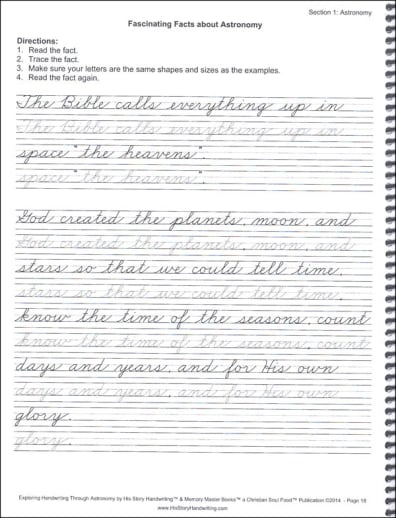 Section 1: Astronomy
Fascinating Facts about Astronomy
Directions:
1. Read the fact.
2. Trace the fact.
3. Make sure your letters are the same shapes and sizes as the examples.
4. Read the fact again.
The Bible calls everything up in
The Bible calls everything up in
space "the heavens".
space "the heavens".
God created the planets, moon, and
God created the planets, moon, and
stars so that we could tell time,
stars so that we could tell time,
know the time of the seasons, count
know the time of the seasons, count
days and years, and for His own
days and years, and for His own
glory.
glory.
Exploring Handwriting Through Astronomy by His Story Handwriting™ & Memory Master Books™ a Christian Soul Food™ Publication ©2014 - Page 18
www.HisStoryHandwriting.com